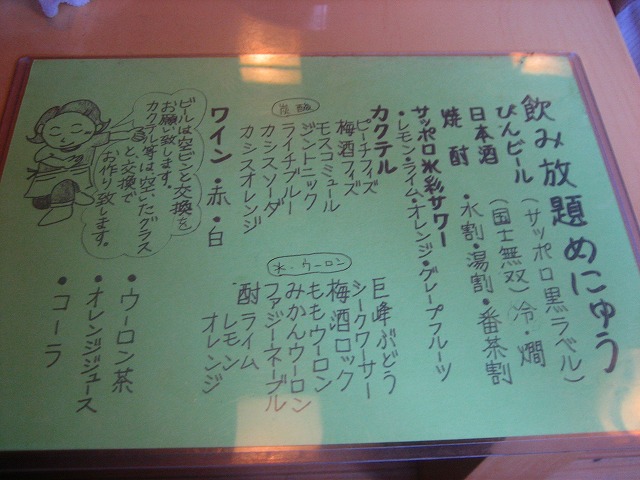 飲み放題めにゅう
びんビール（サッポロ黒ラベル）
日本酒（国士無双）冷・燗
焼酎・水割・湯割・番茶割
サッポロ氷彩サワー
・レモン・ライム・オレンジ・グレープフルーツ
カクテル
炭酸
ピーチフィズ
梅酒フィズ
モスコミュール
ジントニック
ライチブルー
カシスソーダ
カシスオレンジ
水・ウーロン
巨峰ぶどう
シークワーサー
梅酒ロック
ももウーロン
みかんウーロン
ファジーネーブル
酎ライム
レモン
オレンジ
ワイン・赤・白
・ウーロン茶
・オレンジジュース
・コーラ
ビールは空ビンと交換を
お願い致します。
カクテル等は空いたグラス
と交換で
お作り致します。